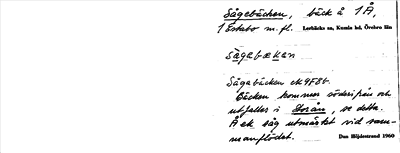 Sågebäcken, bäck å 1 Å,
1 Estabo m. fl. Lerbäcks sn, Kumla hd, Örebro län
sågabækan
Sågebäcken ek 9F8b.
Bäcken kommer söderifrån och
utfaller i Storån, se detta.
Å ek såg utmärkt vid sam-
manflödet. Dan Höjdestrand 1960